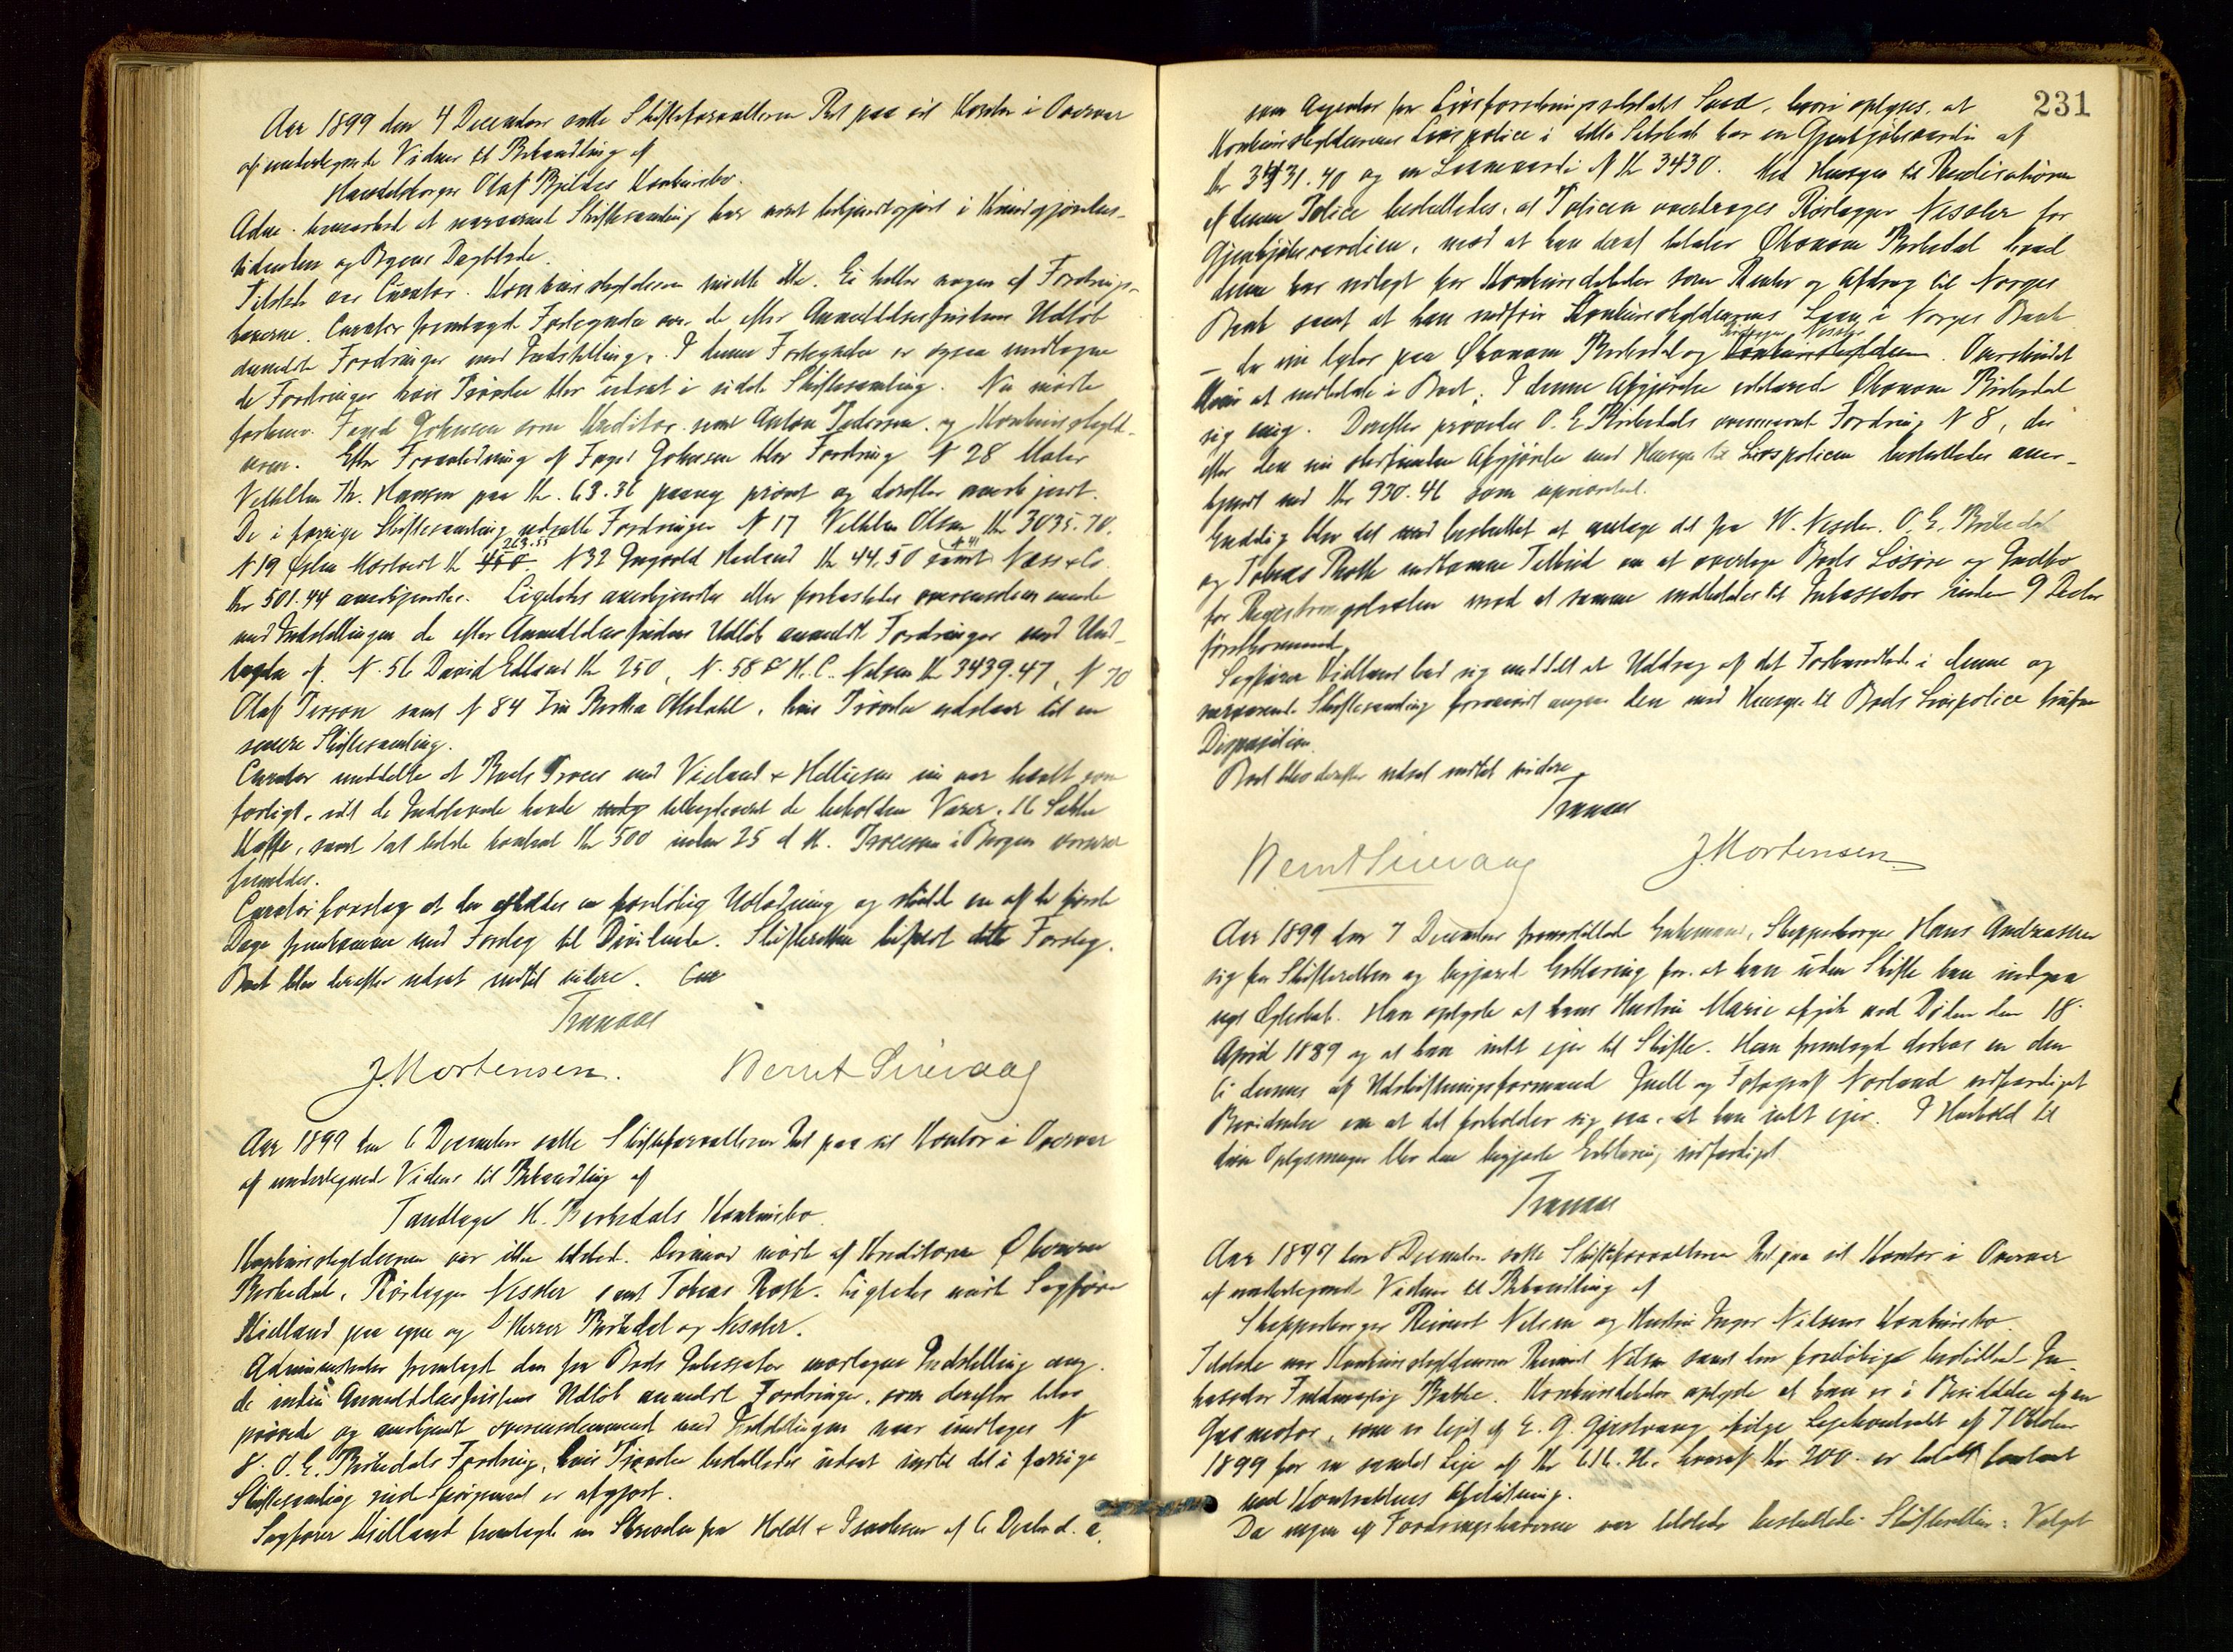 Aar 1899 den 4 December satte Skifteforvalteren Ret paa sit Kontor i Overvær
af undertegnede Vidner til Behandling af
Handelsborger Olaf Kjeldes Konkursbo.
Adm. bemærkede at nærværende Skiftesamling har været bekjendtgjort i Kundgjørelses-
tidenden og Byens Dagblade.
Tilstede var Curator. Konkursskyldneren mødte ikke. Ei heller nogen af Fordrings-
haverne. Curator fremlagde Fortegnelse over de efter Anmeldelsesfristens Udløb
anmeldte Fordringer med Indstilling. I denne Fortegnelse er ogsaa medtagne
de Fordringer hvis Prøvelse blev udsat i sidste Skiftesamling. Nu mødte
forhenv. Foged Johnsen som Kreditor samt Anton Pedersen og Konkursskyld-
neren. Efter Foranledning af Foged Johnsen blev Fordring N 28 Maler
Vilhelm Th. Hansen paa Kr. 63.36 paany prøvet og derefter anerkjendt.
De i forrige Skiftesamling udsatte Fordringer N 17 Vilhelm Olsen Kr 3035.70.
263.55 N 41
N 19 Østen Mortveit Kr 450. N 32 Ingvald Høiland Kr 44.50 samt Næss & Co.
Kr 501.44 anerkjendtes. Ligeledes anerkjendtes eller forkastedes overensstemmende
med Indstillingen de efter Anmeldelsesfristens Udløb anmeldte Fordringer med Und-
tagelse af N. 56 David Edland Kr 250, N. 58 H. C. Nielsen Kr 3439.47, N 70
Olaf Person samt N 84 Fru Bertha Oftedahl, hvis Prøvelse udstaar til en
senere Skiftesamling.
Curator meddelte at Boets Proces med Vieland & Helliesen nu var hævet som
forligt, idet de Indstevnte havde tilbageleveret de beholdne Varer, 16 Sække
Kaffe, samt at betale kontant Kr 500 inden 25 d. M. Processen i Bergen
fremdeles.
Curator foreslog at der afholdes en foreløbig Udlodning og vilde en af de første
Dage fremkomme med Forslag til Dividende. Skifteretten bifaldt dette Forslag.
Boet blev derefter udsat indtil videre.
Tranaas
J. Mortensen. Bernt Sirevaag
Aar 1899 den 6 December satte Skifteforvalteren Ret paa sit Kontor i Overvær
af undertegnede Vidner til Behandling af
Tandlæge H. Birkedals Konkursbo.
Konkursskyldneren var ikke tilstede. Derimod mødte af Kreditorerne Økonom
Birkedal, Rørlægger Nessler samt Tobias Roth. Ligeledes mødte Sagfører
Kielland paa egne og Herrer Birkedal og Nessler.
Administrator fremlagde den fra Boets Inkassator modtagne Indstilling ang.
de inden Anmeldelsesfristens Udløb anmeldte Fordringer, som derefter blev
prøvede og anerkjendt overensstemmende med Indstillingen naar undtages N
8. O. E. Birkedals Fordring, hvis Prøvelse besluttedes udsat indtil det i forrige
Skiftesamling rejste Spørgsmaal er afgjort.
Sagfører Kielland fremlagde en Skrivelse fra Holdt & Isachsen af 6 December d. a.
231
som Agenter for Livsforsikringsselskabet Svea, hvori oplyses, at
Konkursskyldnerens Livspolice i dette Selskab har en Gjenkjøbsværdi af
Kr 3431.40 og en Laaneværdi af Kr 3430. Med Hensyn til Realisationen
af denne Police besluttedes, at Policen overdrages Rørlægger Nessler for
Gjenkjøbsværdien, mod at han deraf betaler Økonom Birkedal hvad
denne har udlagt for Konkursdebitor som Renter og Afdrag til Norges
Bank samt at han indfrir Konkursskyldnerens Laan i Norges Bank
Rørlægger Nessler
— der nu lyder paa Økonom Birkedal og Konkursskyldneren. Overskudet
bliver at indbetale i Boet. I denne Afgjørelse erklærede Økonom Birkedal
sig enig. Derefter prøvedes O. E. Birkedals ovennævnte Fordring N 8, der
efter den nu stedfundne Afgjørelse med Hensyn til Livspolicen besluttedes aner-
kjendt med Kr 930.46 som uprioriteret.
Endelig blev det med besluttet at antage det fra W. Nessler, O. E. Birkedal
og Tobias Roth indkomne Tilbud om at overtage Boets Løsøre og Indbo
for Registreringstaxten mod at samme indbetales til Inkassator inden 9 Decbr
førstkommende.
Sagfører Kielland bad sig meddelt et Uddrag af det Forhandlede i denne og
nærværende Skiftesamling forsaavidt angaar den med Hensyn til Boets Livspolice trufne
Disposition.
Boet blev derefter udsat indtil videre.
Tranaas
Bernt Sirevaag J. Mortensen
Aar 1899 den 7 December fremstillede Enkemand, Skipperborger Hans Andreassen
sig for Skifteretten og begjærede Erklæring for at han uden Skifte kan indgaa
nyt Ægteskab. Han oplyste at hans Hustru Marie afgik ved Døden den 18
April 1889 og at han intet ejer til Skifte. Han fremlagde derhos en den
6 dennes af Udskiftningsformand Juell og Fotograf Norland udfærdiget
Bevidnelse om at det forholder sig saa, at han intet ejer. I Henhold til
disse Oplysninger blev den begjærede Erklæring udfærdiget.
Tranaas
Aar 1899 den 8 December satte Skifteforvalteren Ret paa sit Kontor i Overvær
af undertegnede Vidner til Behandling af
Skipperborger Reinert Nilsen og Hustru Inger Nilsens Konkursbo.
Tilstede var Konkursskyldneren Reinert Nilsen samt den foreløbige beskikkede In-
kassator Fuldmægtig Bakke. Konkursdebitor oplyste at han er i Besiddelse af en
Gasmotor, som er lejet af E. G. Gjestvang ifølge Lejekontrakt af 7 Oktober
1899 for en samlet Leje af Kr hvoraf Kr 200. er betalt kontant
ved Kontraktens Afslutning.
Da ingen af Fordringshaverne var tilstede besluttede Skifteretten: Valget